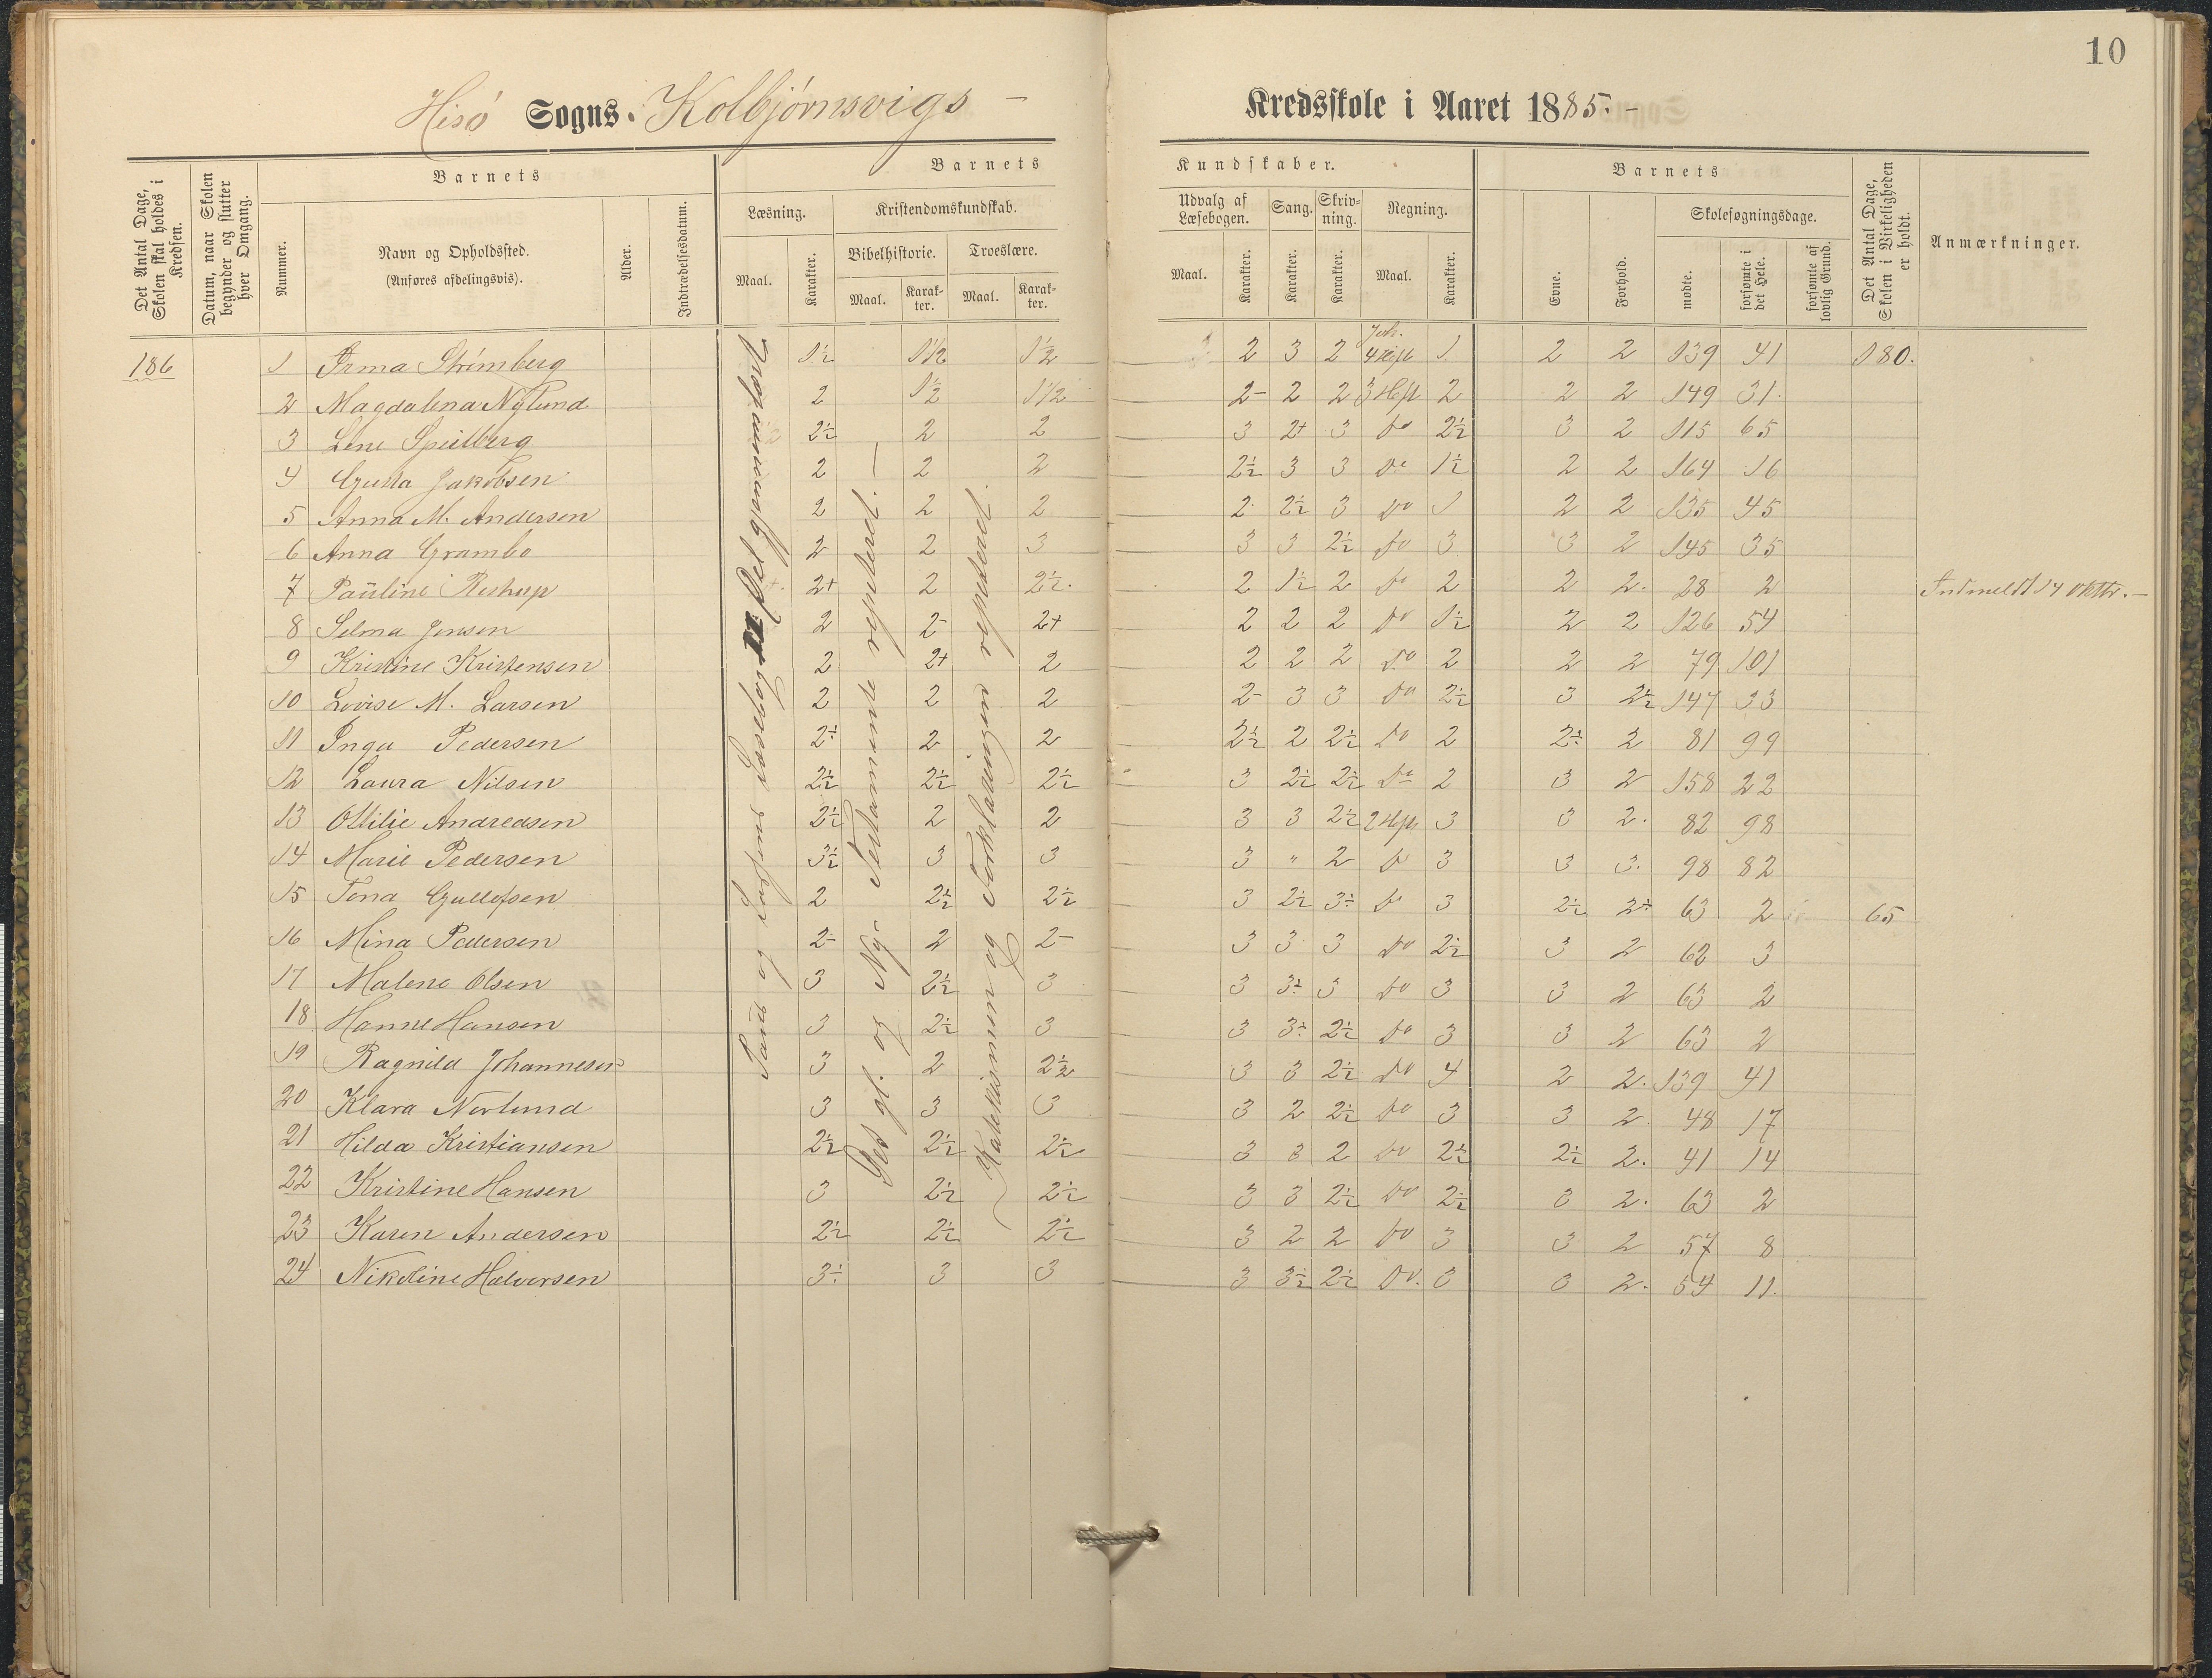 10
Hisö Sogns Kolbjörnsvigs – Kredsskole i Aaret 1885. –
Det Antal Dage, Skolen skal holdes i Kredsen.
Datum, naar Skolen begynder og slutter hver Omgang.
Barnets
Nummer.
Navn og Opholdssted. (Anføres afdelingsvis).
Alder.
Indtrædelsesdatum.
Barnets Kundskaber.
Læsning. Maal. Karakter.
Kristendomskundskab.
Bibelhistorie. Maal. Karakter.
Troeslære. Maal. Karakter.
Udvalg af Læsebogen. Maal. Karakter.
Sang. Karakter.
Skrivning. Karakter.
Regning. Maal. Karakter.
Barnets
Evne.
Forhold.
Skolesøgningsdage.
mødte.
forsømte i det Hele.
forsømte af lovlig Grund.
Det Antal Dage, Skolen i Virkeligheden er holdt.
Anmærkninger.
Læsebog
Det gl. og Nye Testamente repeteret.
Katekismen og Forklaringen repeteret.
186 1 Irma Strömberg 1½ 1½ 1½ 2 3 2 4 1 2 2 139 41 180.
2 Magdalena Nylund 2 1½ 1½ 2- 2 2 3 Hft 2 2 2 149 31.
3 Lene Speilberg 2½ 2 2 3 2+ 3 Do 2½ 3 2 115 65
4 Gusta Jakobsen 2 2 2 2½ 3 3 Do 1½ 2 2 164 16
5 Anna M. Andersen 2 2 2 2 2½ 3 Do 1 2 2 135 45
6 Anna Grambo 2 2 3 3 3 2½ Do 3 3 2 145 35
7 Pauline Restrup 2+ 2 2½ 2 1½ 2 Do 2 2 2. 28 2 Indmeldt 14 Oktbr. –
8 Selma Jensen 2 2- 2+ 2 2 2 Do 1½ 2 2 126 54
9 Kristine Kristensen 2 2+ 2 2 2 2 Do 2 2 2 79 101
10 Lovise M. Larsen 2 2 2 2- 3 3 Do 2½ 3 2½ 147 33
11 Inga Pedersen 2½ 2 2 2½ 2 2½ Do 2 2½ 2 81 99
12 Laura Nilsen 2½ 2½ 2½ 3 2½ 2½ Do 2 3 2 158 22
13 Ottilie Andreasen 2½ 2 2 3 3 2½ 2 Hft 3 3 2. 82 98
14 Marie Pedersen 3½ 3 3 3 " 2 Do 3 3 3. 98 82
15 Tona Gullofsen 2 2½ 2½ 3 2½ 3½ Do 3 2½ 2½ 63 2 65
16 Mina Pedersen 2- 2 2- 3 3 3 Do 2½ 3 2 62 3
17 Malene Olsen 3 2½ 3 3 3½ 3 Do 3 3 2 63 2
18 Hanne Hansen 3 2½ 3 3 3½ 2½ Do 3 3 2 63 2
19 Ragnild Johannesen 3 2 2½ 3 3 2½ Do 4 2 2. 139 41
20 Klara Norlund 3 3 3 3 2 2½ Do 3 3 2. 48 17
21 Hilda Kristiansen 2½ 2½ 2½ 3 3 2 Do 2½ 2½ 2. 41 14
22 Kristine Hansen 3 2½ 2½ 3 3 2½ Do 2½ 3 2. 63 2
23 Karen Andersen 2½ 2½ 2½ 3 2 2 Do 3 3 2 57 8
24 Nikoline Halvorsen 3½ 3 3 3 3½ 2½ Do. 3 3 2. 54 11.